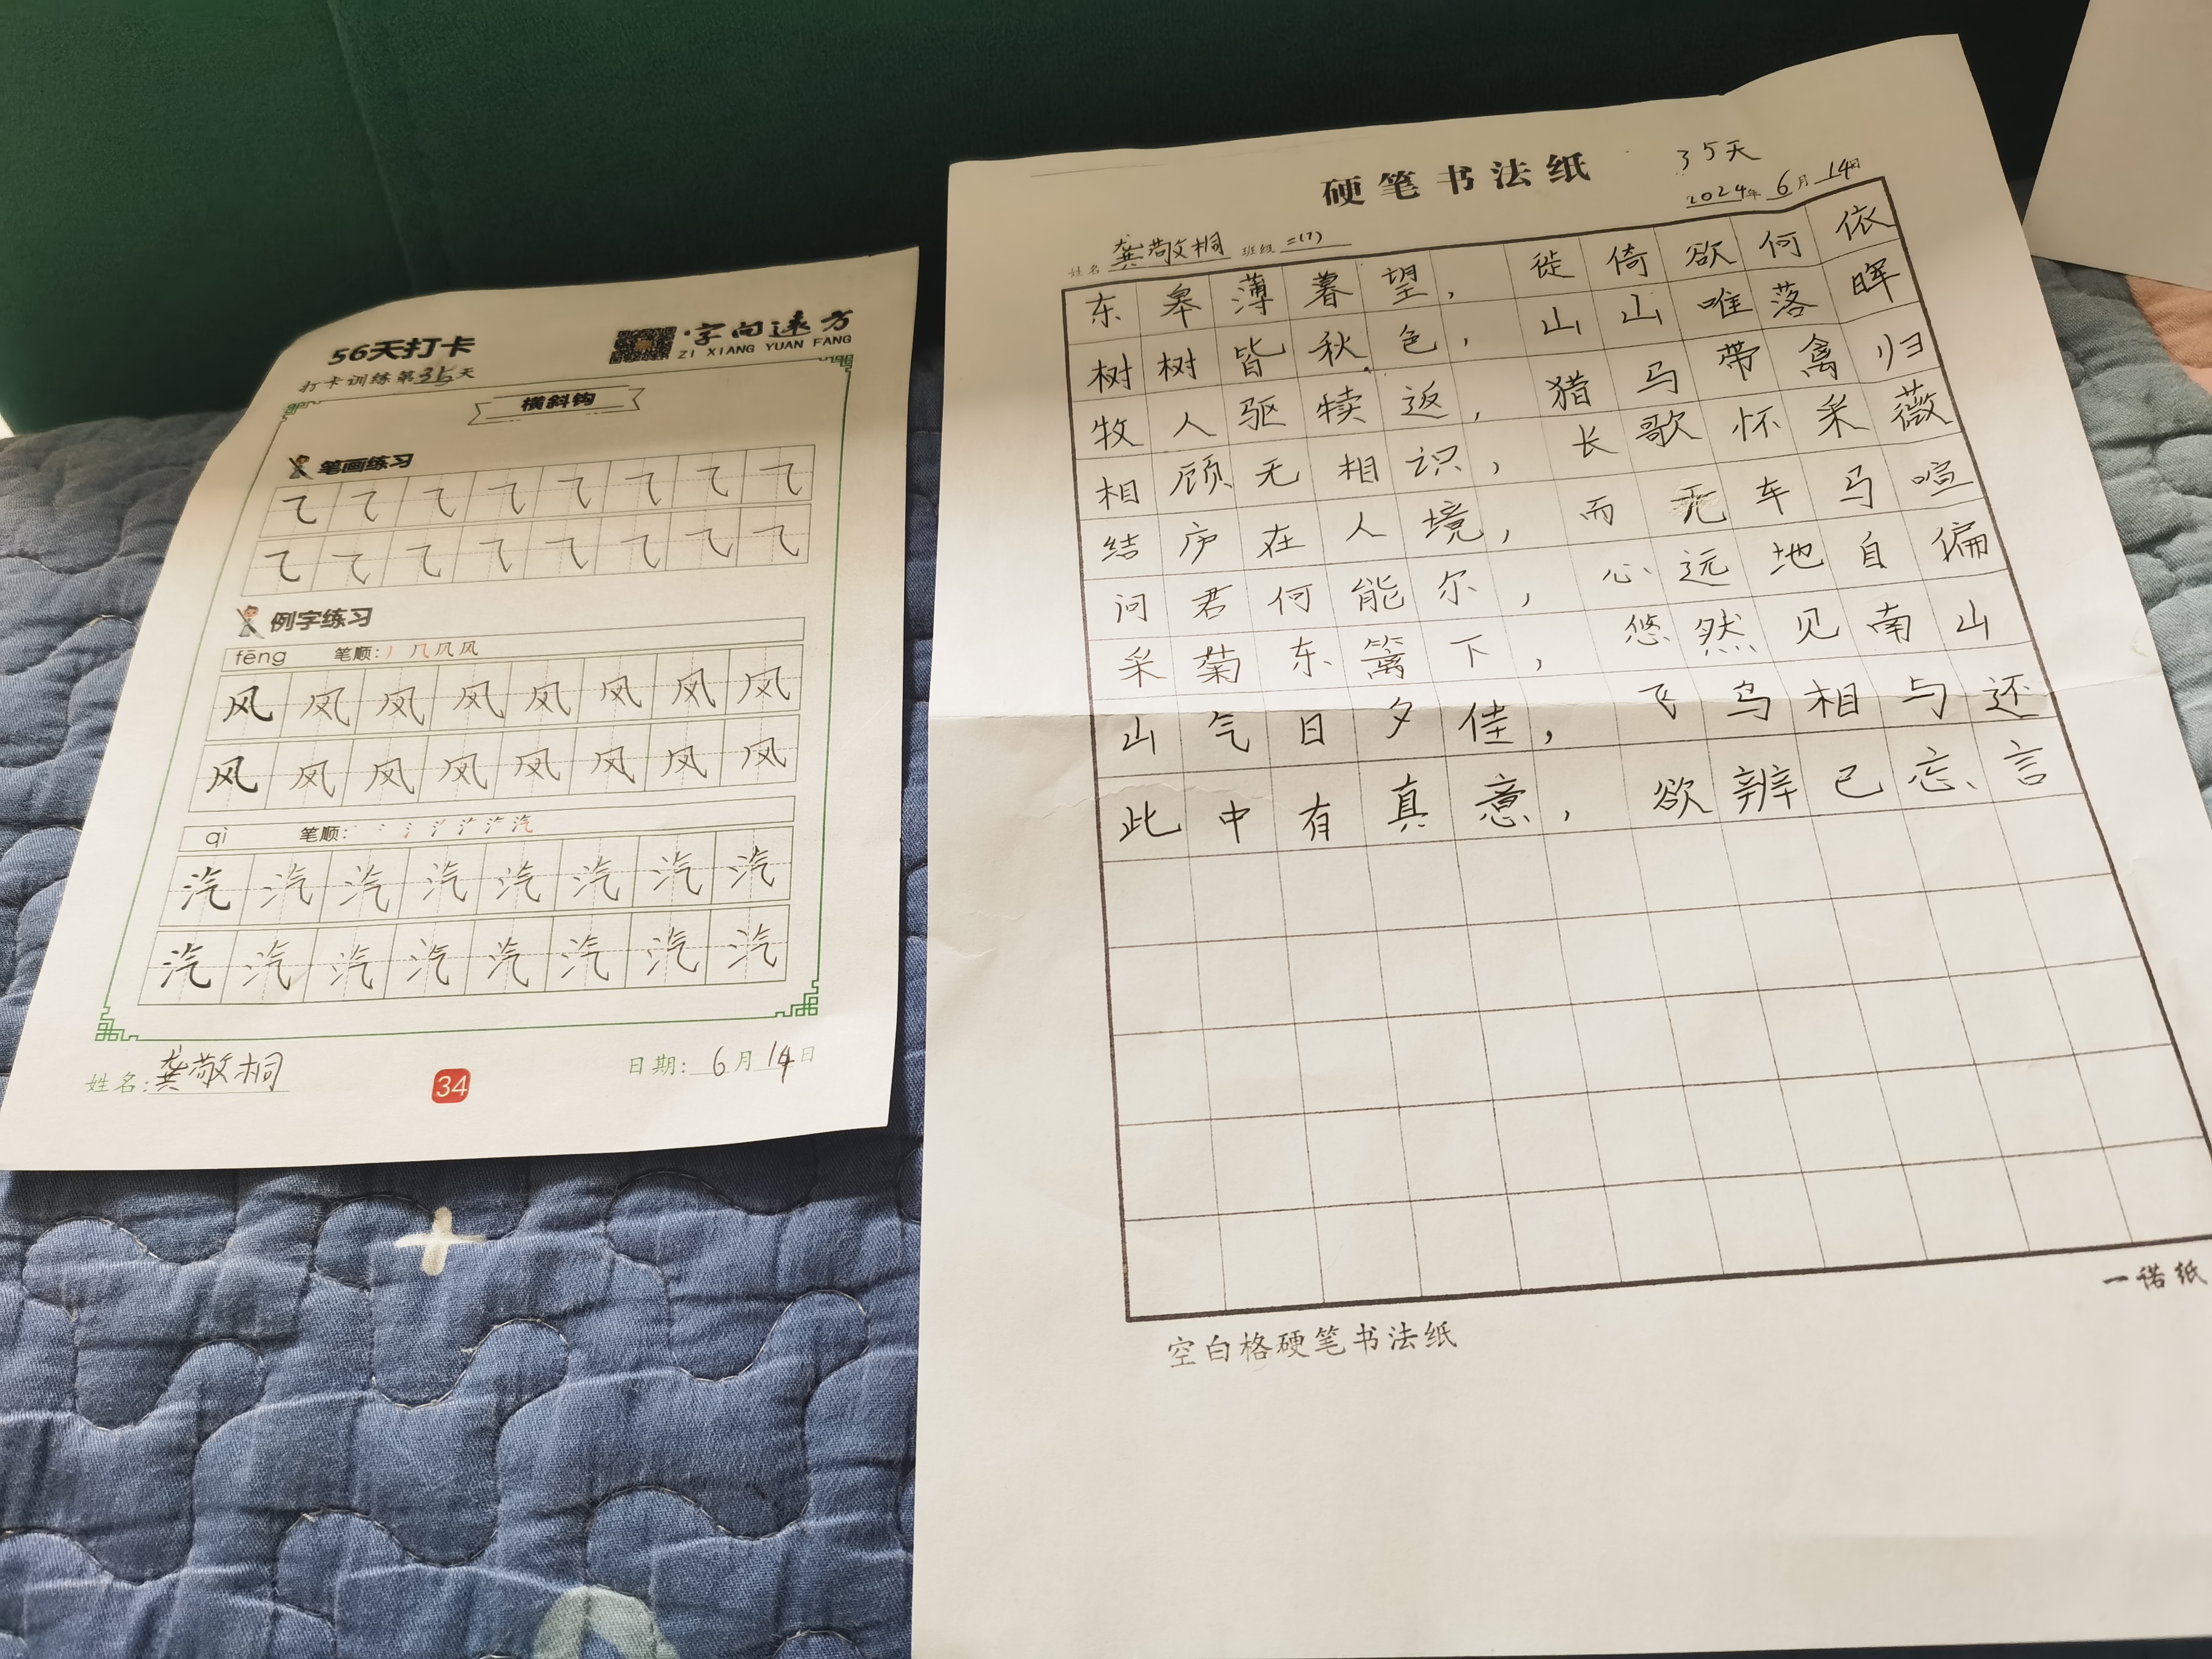 56天打卡
字向远方
ZI XIANG YUAN FANG
打卡训练第35天
横斜钩
笔画练习
⺄ ⺄ ⺄ ⺄ ⺄ ⺄ ⺄ ⺄
⺄ ⺄ ⺄ ⺄ ⺄ ⺄ ⺄ ⺄
例字练习
fēng 笔顺:丿 ⺄ 风 风
风 风 风 风 风 风 风 风
风 风 风 风 风 风 风 风
qì 笔顺:
汽 汽 汽 汽 汽 汽 汽 汽
汽 汽 汽 汽 汽 汽 汽 汽
姓名:龚敬桐
34
日期:6月14日
硬笔书法纸
35天
2024年6月14日
姓名 龚敬桐 班级 二(7)
东皋薄暮望,徙倚欲何依
树树皆秋色,山山唯落晖
牧人驱犊返,猎马带禽归
相顾无相识,长歌怀采薇
结庐在人境,而无车马喧
问君何能尔,心远地自偏
采菊东篱下,悠然见南山
山气日夕佳,飞鸟相与还
此中有真意,欲辨已忘言
一诺纸
空白格硬笔书法纸